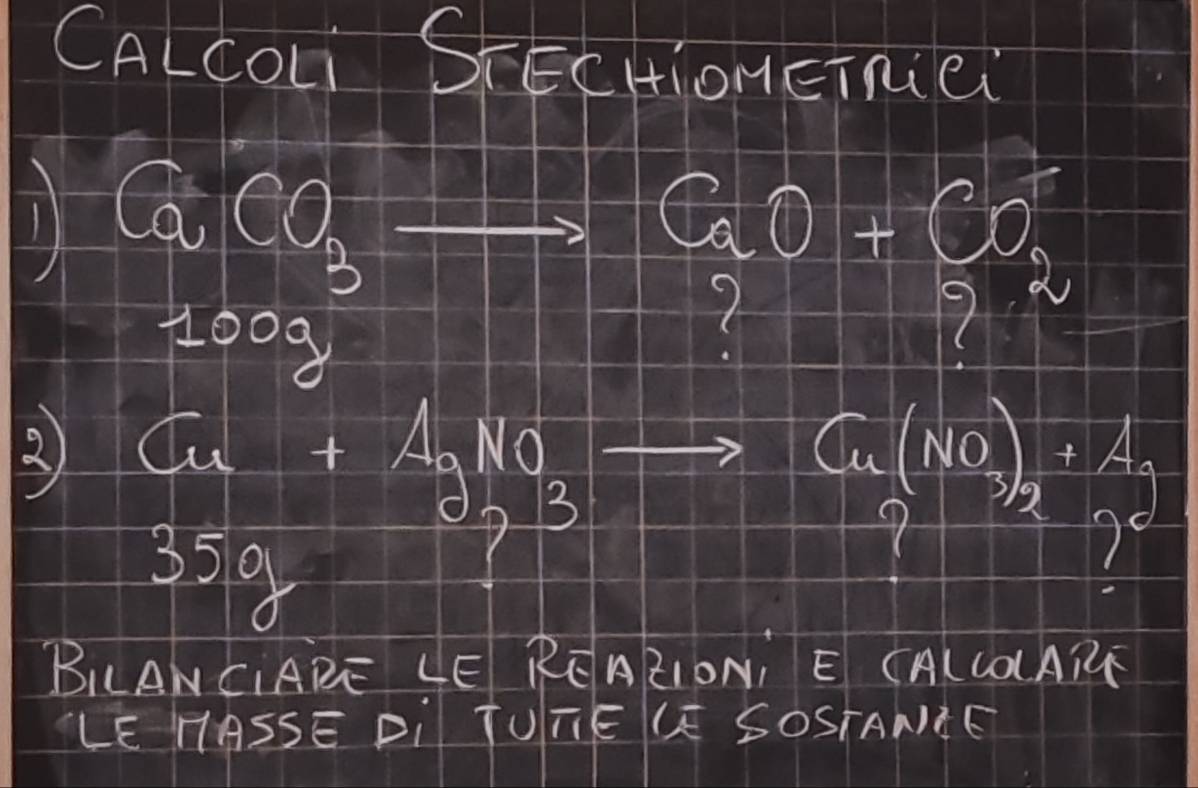 CALCOLI STECHIOMETRICI
1) CaCO3 → CaO + CO2
100g ? ?
2) Cu + AgNO3 → Cu(NO3)2 + Ag
35g ? ? ?
BILANCIARE LE REAZIONI E CALCOLARE
LE MASSE DI TUTTE LE SOSTANZE